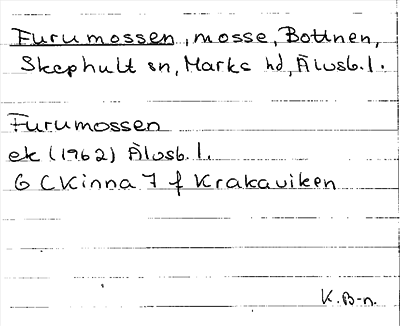 Furumossen, mosse, Bottnen,
Skephult sn, Marks hd, Älvsb. l.
Furumossen
ek (1962) Älvsb. l.
6 C Kinna 7 f Krakaviken
K. B-n.